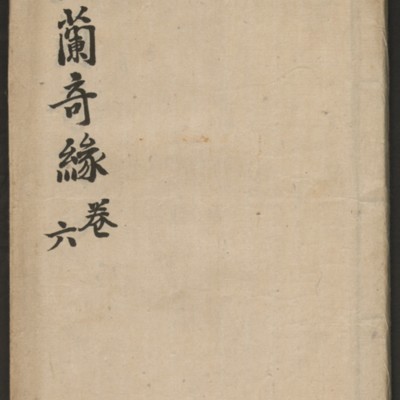 蘭奇緣
卷六